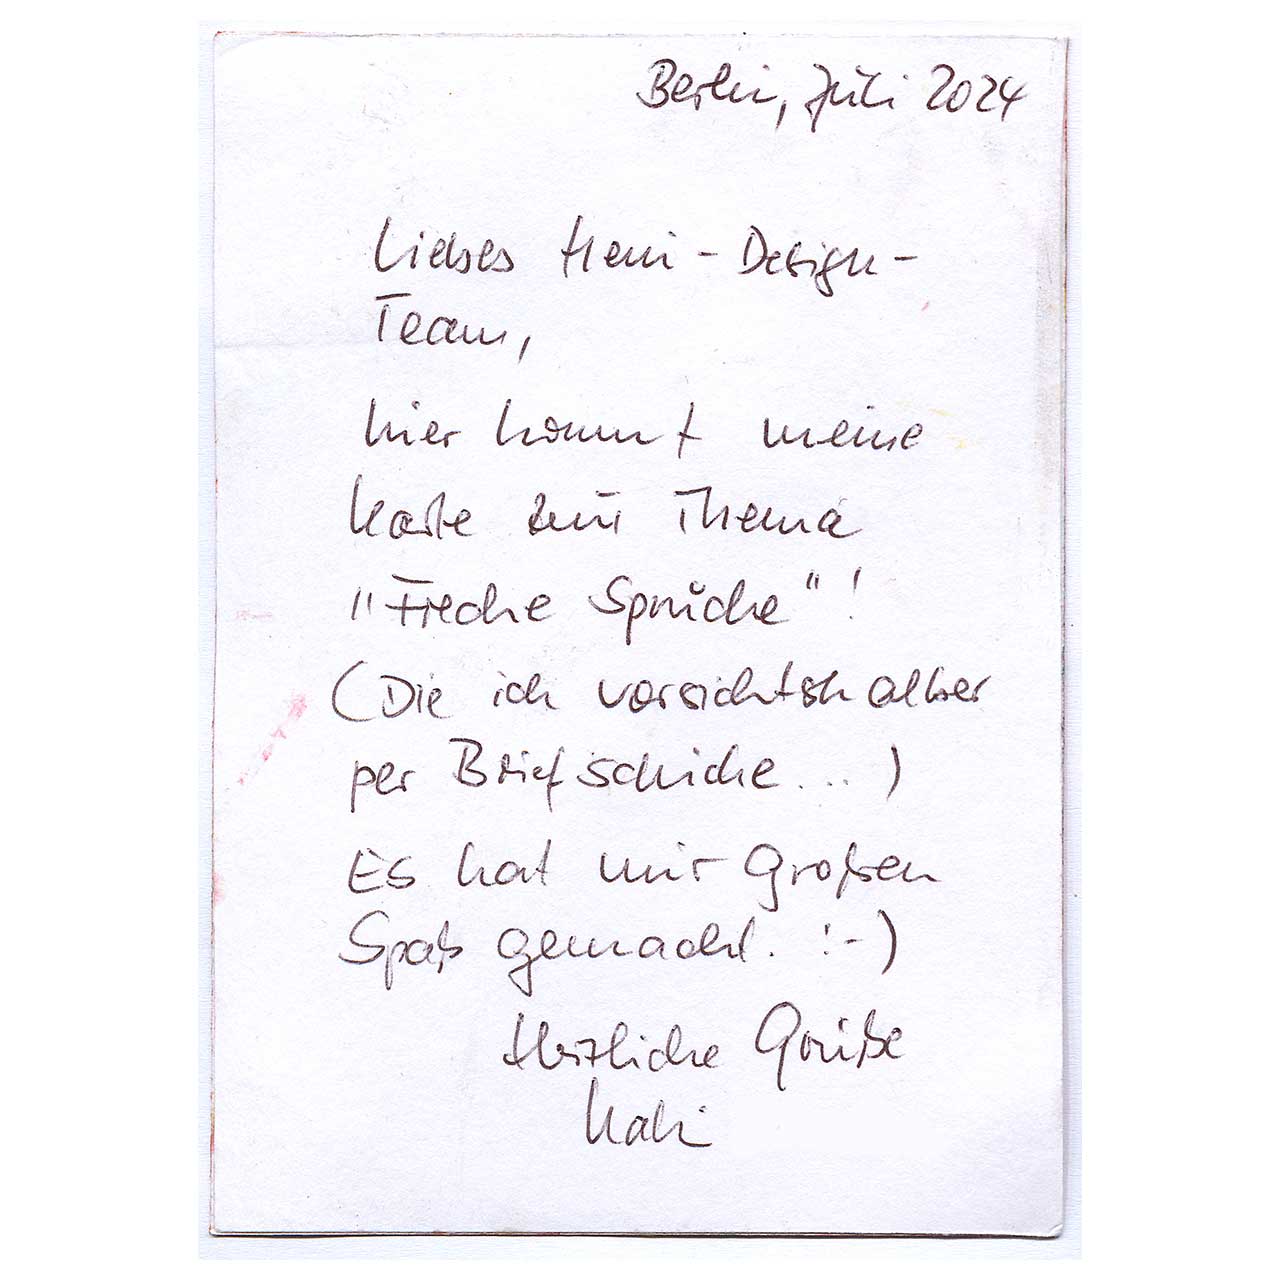 Berlin, Juli 2024
Liebes Heni-Design-
Team,
hier kommt meine
Karte zum Thema
"Freche Sprüche"!
(Die ich vorsichtshalber
per Brief schicke...)
Es hat mir großen
Spaß gemacht. :-)
Herzliche Grüße